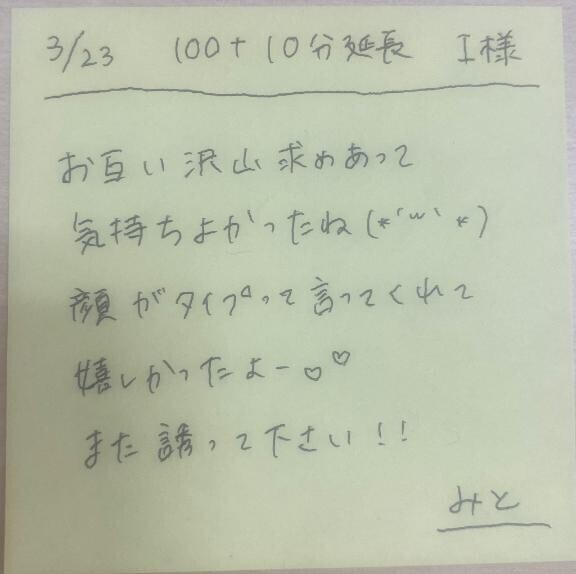 3/23 100+10分延長 I様
お互い沢山求めあって
気持ちよかったね(*´꒳`*)
顔がタイプって言ってくれて
嬉しかったよー♡♡
また誘って下さい!!
みと